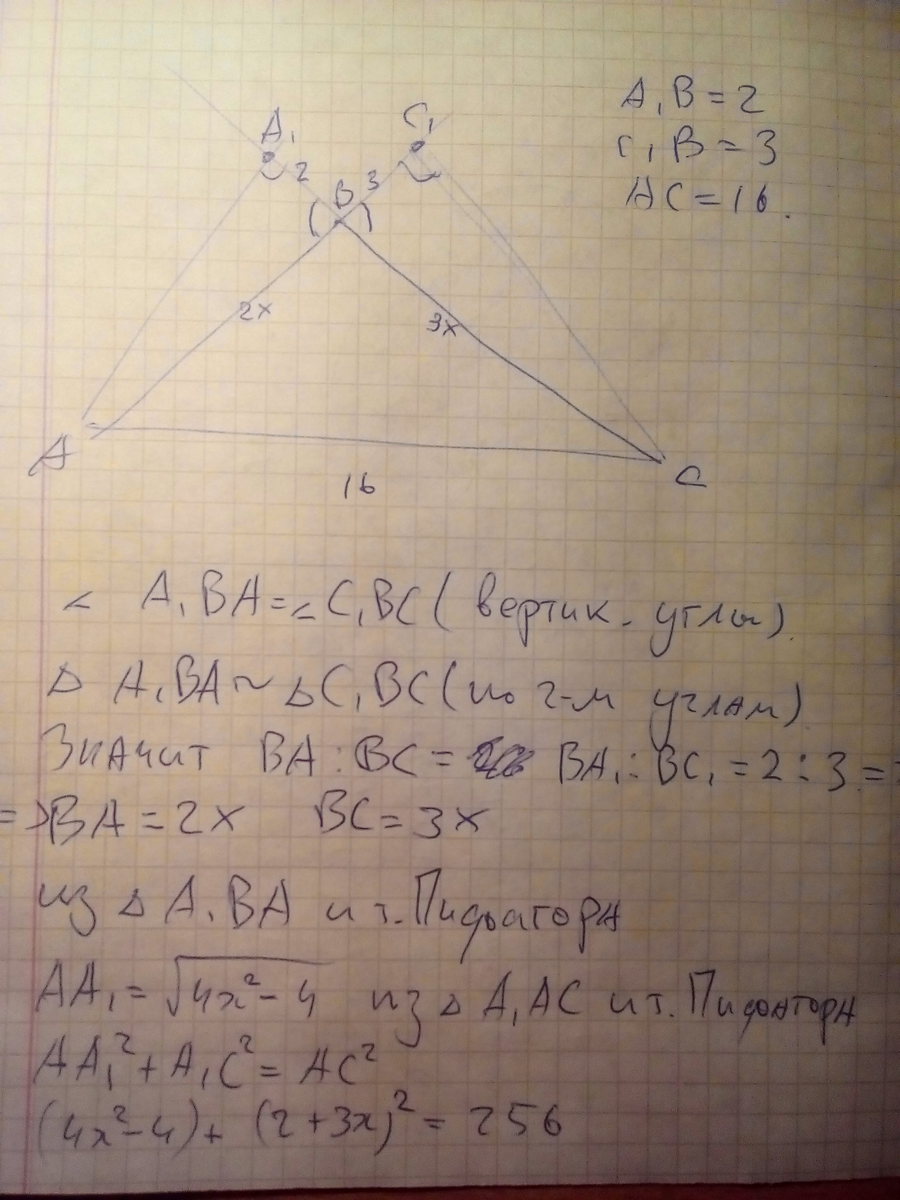 A₁B = 2
C₁B = 3
AC = 16.
A₁
C₁
2
B
3
2x
3x
A
C
16
∠ A₁BA = ∠ C₁BC (вертик. углы).
Δ A₁BA ~ Δ C₁BC (по 2-м углам)
Значит BA : BC = BA₁ : BC₁ = 2 : 3 =>
=> BA = 2x BC = 3x
из Δ A₁BA и т. Пифагора
AA₁ = √4x² - 4 из Δ A₁AC и т. Пифагора
AA₁² + A₁C² = AC²
(4x² - 4) + (2 + 3x)² = 256